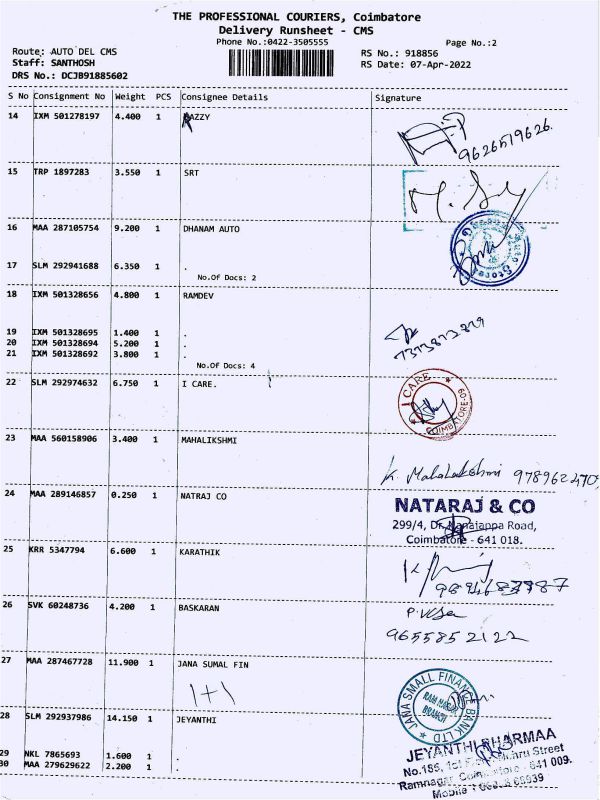 THE PROFESSIONAL COURIERS, Coimbatore
Delivery Runsheet - CMS
Phone No.:0422-3505555
Page No.:2
Route: AUTO DEL CMS
Staff: SANTHOSH
DRS No.: DCJB91885602
RS No.: 918856
RS Date: 07-Apr-2022
S No Consignment No Weight PCS Consignee Details Signature
14 IXM 501278197 4.400 1 RAZZY
9626519626
15 TRP 1897283 3.550 1 SRT
16 MAA 287105754 9.200 1 DHANAM AUTO
17 SLM 292941688 6.350 1 .
No.Of Docs: 2
18 IXM 501328656 4.800 1 RAMDEV
19 IXM 501328695 1.400 1 .
20 IXM 501328694 5.200 1 .
21 IXM 501328692 3.800 1 .
No.Of Docs: 4
22 SLM 292974632 6.750 1 I CARE.
I CARE
COIMBATORE-09
23 MAA 560158906 3.400 1 MAHALIKSHMI
K. Mahalakshmi
24 MAA 289146857 0.250 1 NATRAJ CO
NATARAJ & CO
299/4, Dr. Nanjappa Road,
Coimbatore - 641 018.
25 KRR 5347794 6.600 1 KARATHIK
26 SVK 60248736 4.200 1 BASKARAN
9655852122
27 MAA 287467728 11.900 1 JANA SUMAL FIN
1+1
JANA SMALL FINANCE BANK LTD
BRANCH
28 SLM 292937986 14.150 1 JEYANTHI
JEYANTHI SHARMAA
No.185, 1st Nehru Street
Ramnagar 641 009.
Mobile
29 NKL 7865693 1.600 1 .
30 MAA 279629622 2.200 1 .